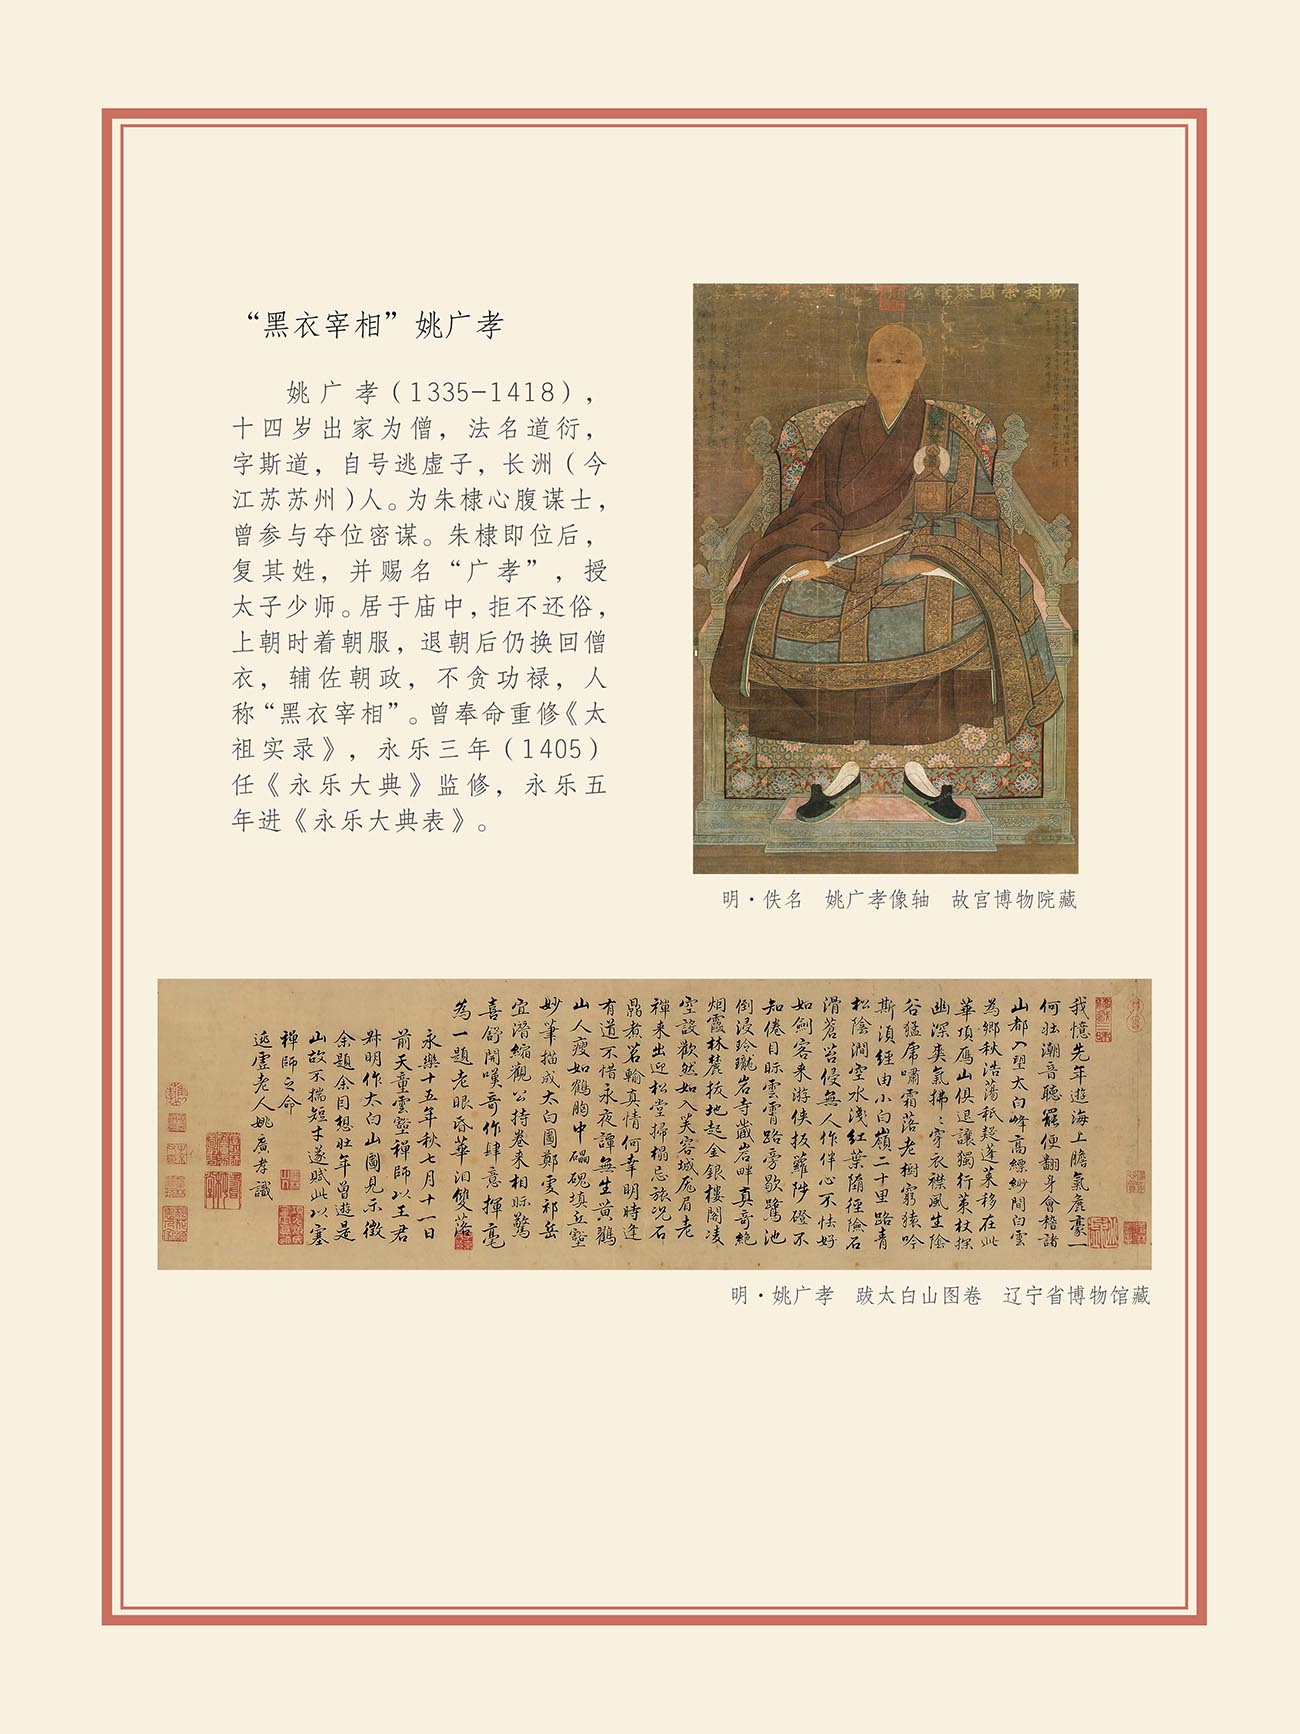 “黑衣宰相”姚广孝
姚广孝（1335-1418），
十四岁出家为僧，法名道衍，
字斯道，自号逃虚子，长洲（今
江苏苏州）人。为朱棣心腹谋士，
曾参与夺位密谋。朱棣即位后，
复其姓，并赐名“广孝”，授
太子少师。居于庙中，拒不还俗，
上朝时着朝服，退朝后仍换回僧
衣，辅佐朝政，不贪功禄，人
称“黑衣宰相”。曾奉命重修《太
祖实录》，永乐三年（1405）
任《永乐大典》监修，永乐五
年进《永乐大典表》。
明·佚名 姚广孝像轴 故宫博物院藏
我憶先年遊海上膽氣麄豪一
何壯潮音聽罷便翻身會稽諸
山都入望太白峰高縹緲間白雲
為鄉秋浩蕩秖疑蓬萊移在此
華頂鴈山俱退讓獨行策杖探
幽深爽氣拂〻穿衣襟風生陰
谷猛虎嘯霜落老樹窮猿吟
斯須經由小白嶺二十里路青
松陰澗空水淺紅葉隋徑險石
滑蒼苔侵無人作伴心不怯好
如劍客來游俠扳蘿陟磴不
知倦目眎雲霄路旁歇鷺池
倒浸玲瓏岩寺藏岩畔真奇絕
烟霞林麓拔地起金銀樓閣凌
空設歡然如入芙容城厖眉老
禪來出迎松堂掃榻忘旅况石
鼎煮茗輸真情何幸明時逢
有道不惜永夜譚無生黃鶴
山人瘦如鶴胸中磊磈填丘壑
妙筆描成太白圖鄭虔祁岳
宜潛縮觀公持卷來相眎驚
喜舒開嘆奇作肆意揮毫
為一題老眼昏華泪雙落
永樂十五年秋七月十一日
前天童雲壑禪師以王君
叔明作太白山圖見示徵
余題余因想壯年曾遊是
山故不揣短才遂賦此以塞
禪師之命
逃虛老人姚廣孝識
明·姚广孝 跋太白山图卷 辽宁省博物馆藏